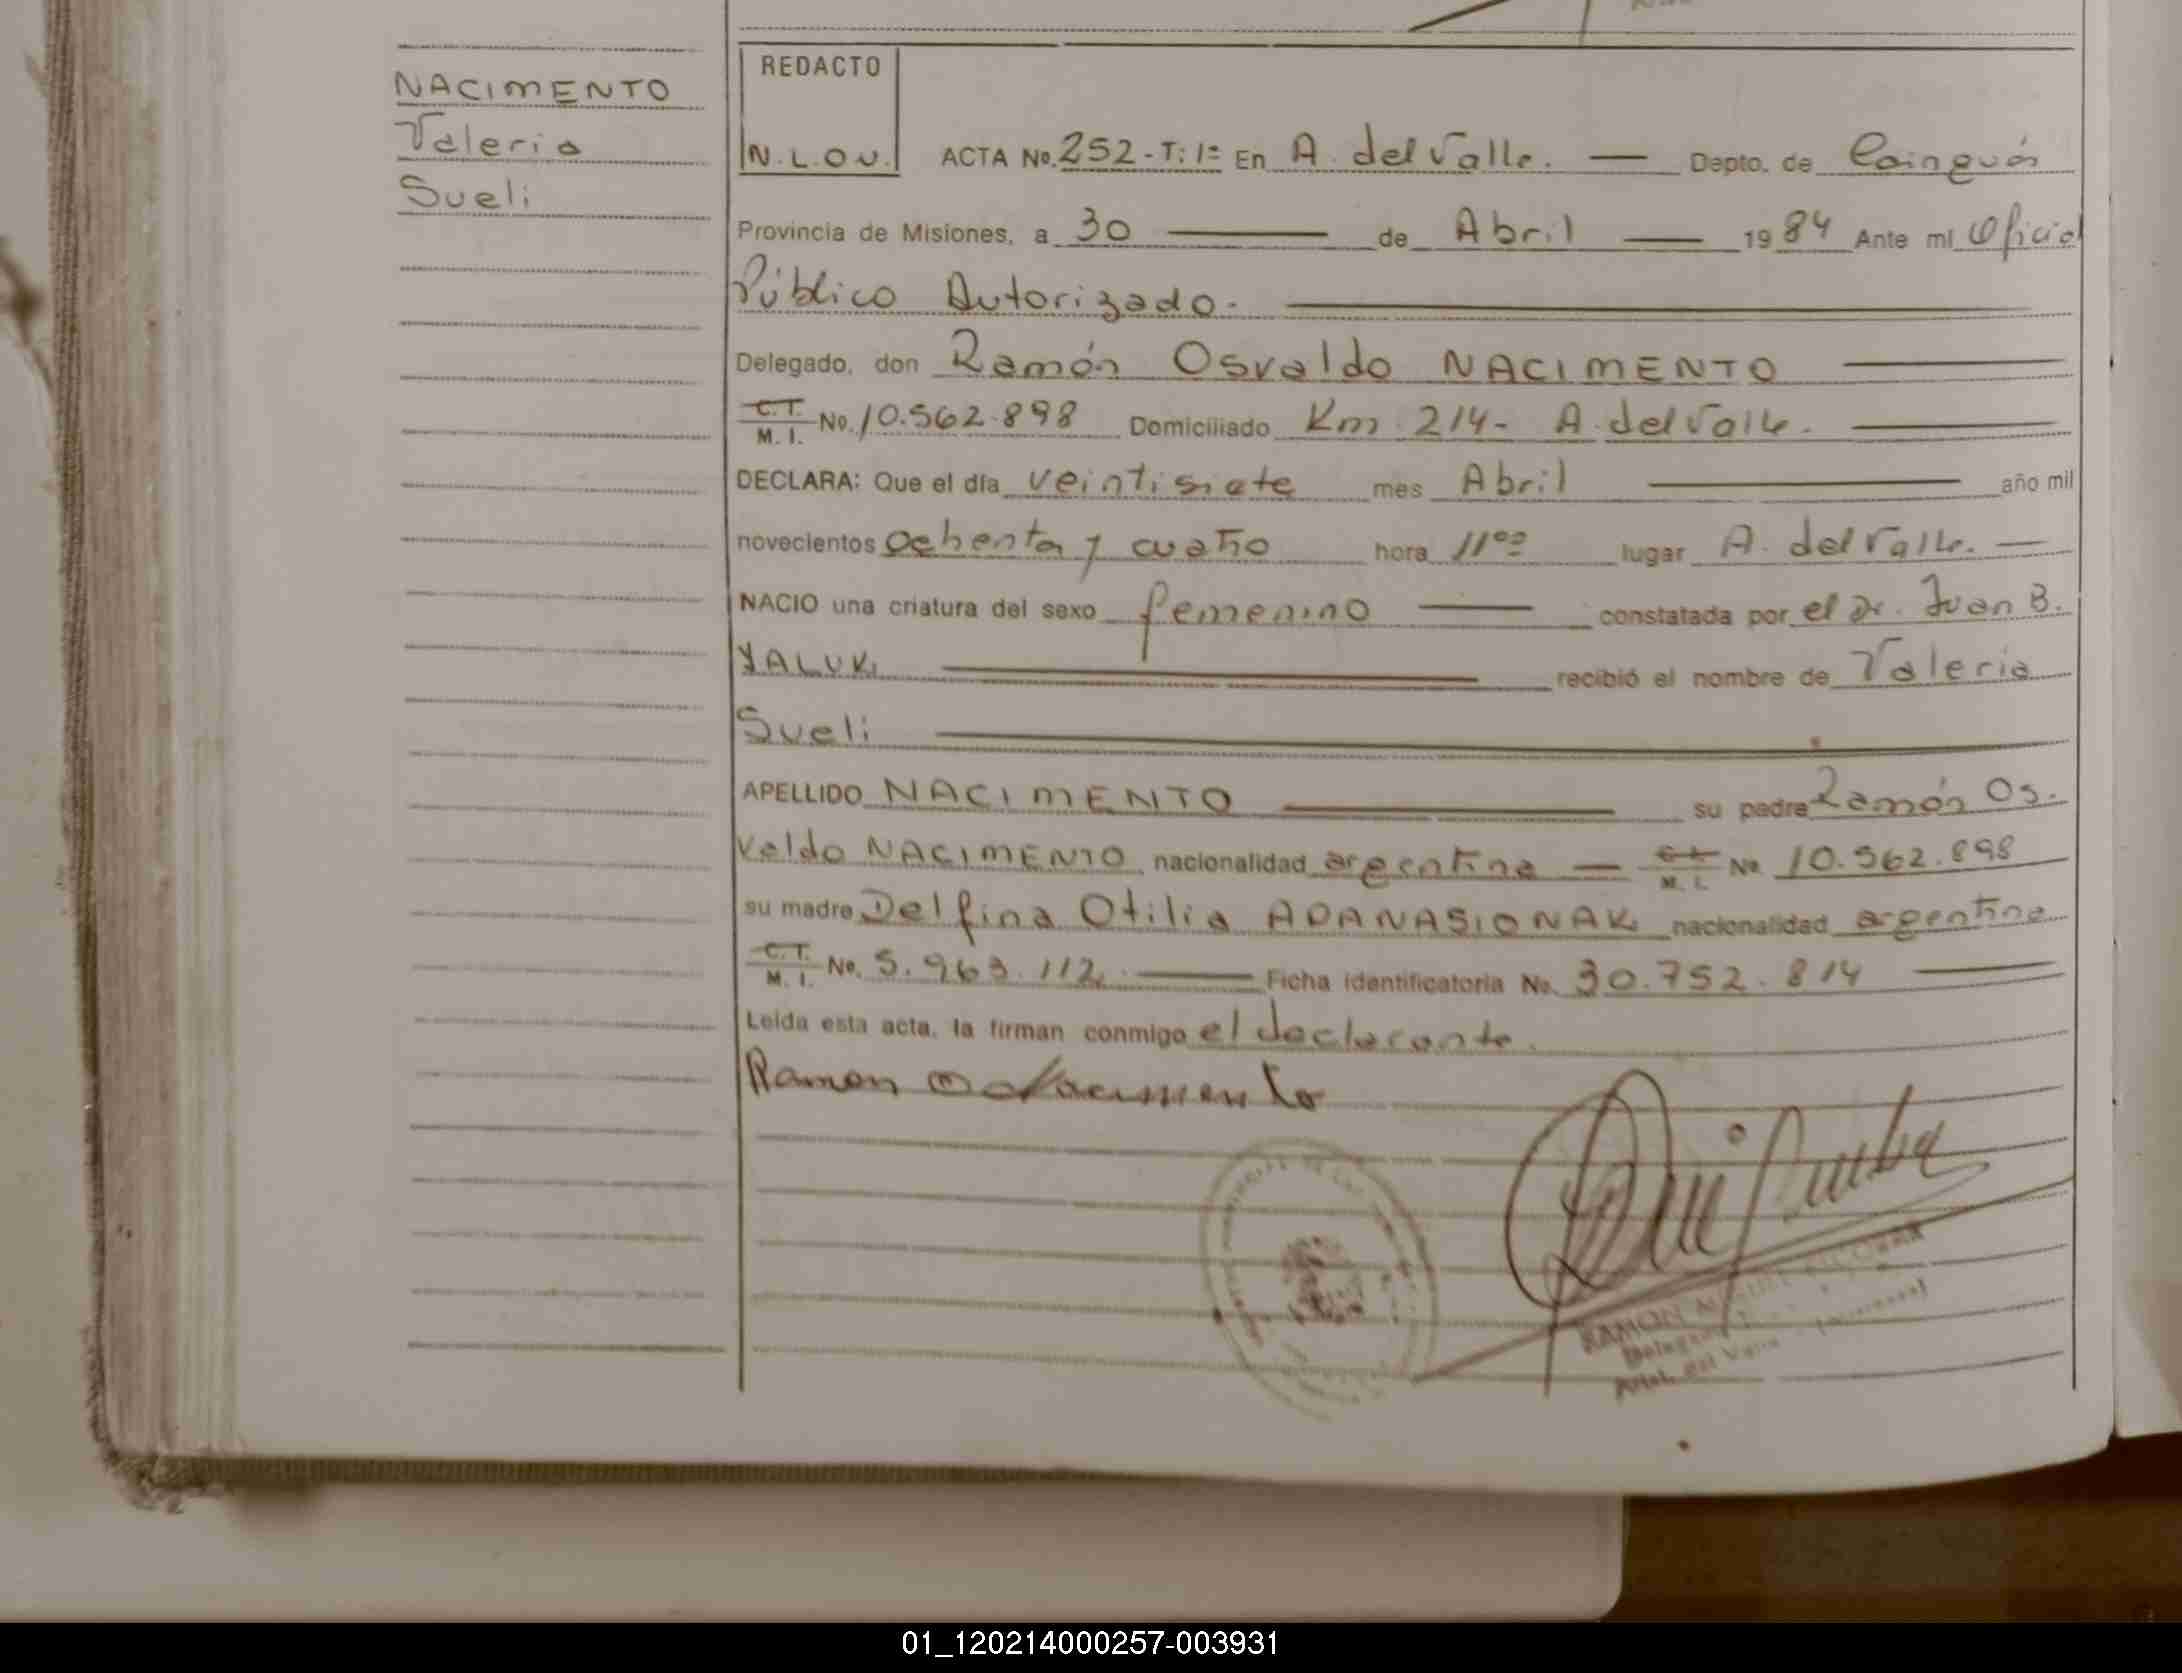 NACIMENTO
Valeria
Sueli
REDACTO
N.L.O.N.
ACTA No. 252-T:1º En A. del Valle. Depto. de Cainguás
Provincia de Misiones, a 30 de Abril 1984 Ante mí Oficial
Público Autorizado.
Delegado, don Ramón Osvaldo NACIMENTO
C.T. M.I. No. 10.562.898 Domiciliado Km 214- A. del Valle.
DECLARA: Que el día veintisiete mes Abril año mil
novecientos ochenta y cuatro hora 11°° lugar A. del Valle.
NACIO una criatura del sexo femenino constatada por el Dr. Juan B.
YALUK recibió el nombre de Valeria
Sueli
APELLIDO NACIMENTO su padre Ramón Os.
valdo NACIMENTO nacionalidad argentina M.I. No. 10.562.898
su madre Delfina Otilia nacionalidad argentina
C.T. M.I. No. 5.963.112 Ficha identificatoria No. 30.752.814
Leída esta acta, la firman conmigo el declarante.
Ramon O Nacimento
RAMON
01_120214000257-003931